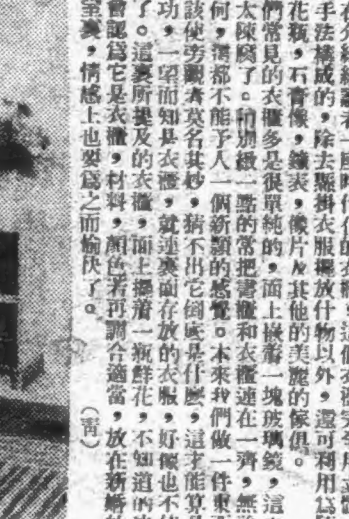 在介紹給讀者一國時代化的衣櫃，這個衣櫃完全用立體
手法構成的，除去懸掛衣服擺放什物以外，還可利用爲
花瓶，石膏像，鐘表，像片及其他的美麗的傢俱。
們常見的衣櫃多是很單純的，面上嵌着一塊玻璃鏡，這
太陳腐了。和別緻一點的常把書櫃和衣櫃連在一齊，無
何，都不能予人一個新頴的感覺。本來我們做一件東
該使旁觀者莫名其妙，猜不出它倒底是什麼，這才能算
功，一望而知是衣櫃，就連裏面存放的衣服，好像也不
了。這裏所提及的衣櫃，面上擺着一瓶鮮花，不知道的
會認爲它是衣櫃，材料，顏色若再調合適當，放在新婚
裏，情感上也要爲之而愉快了。
（靑）